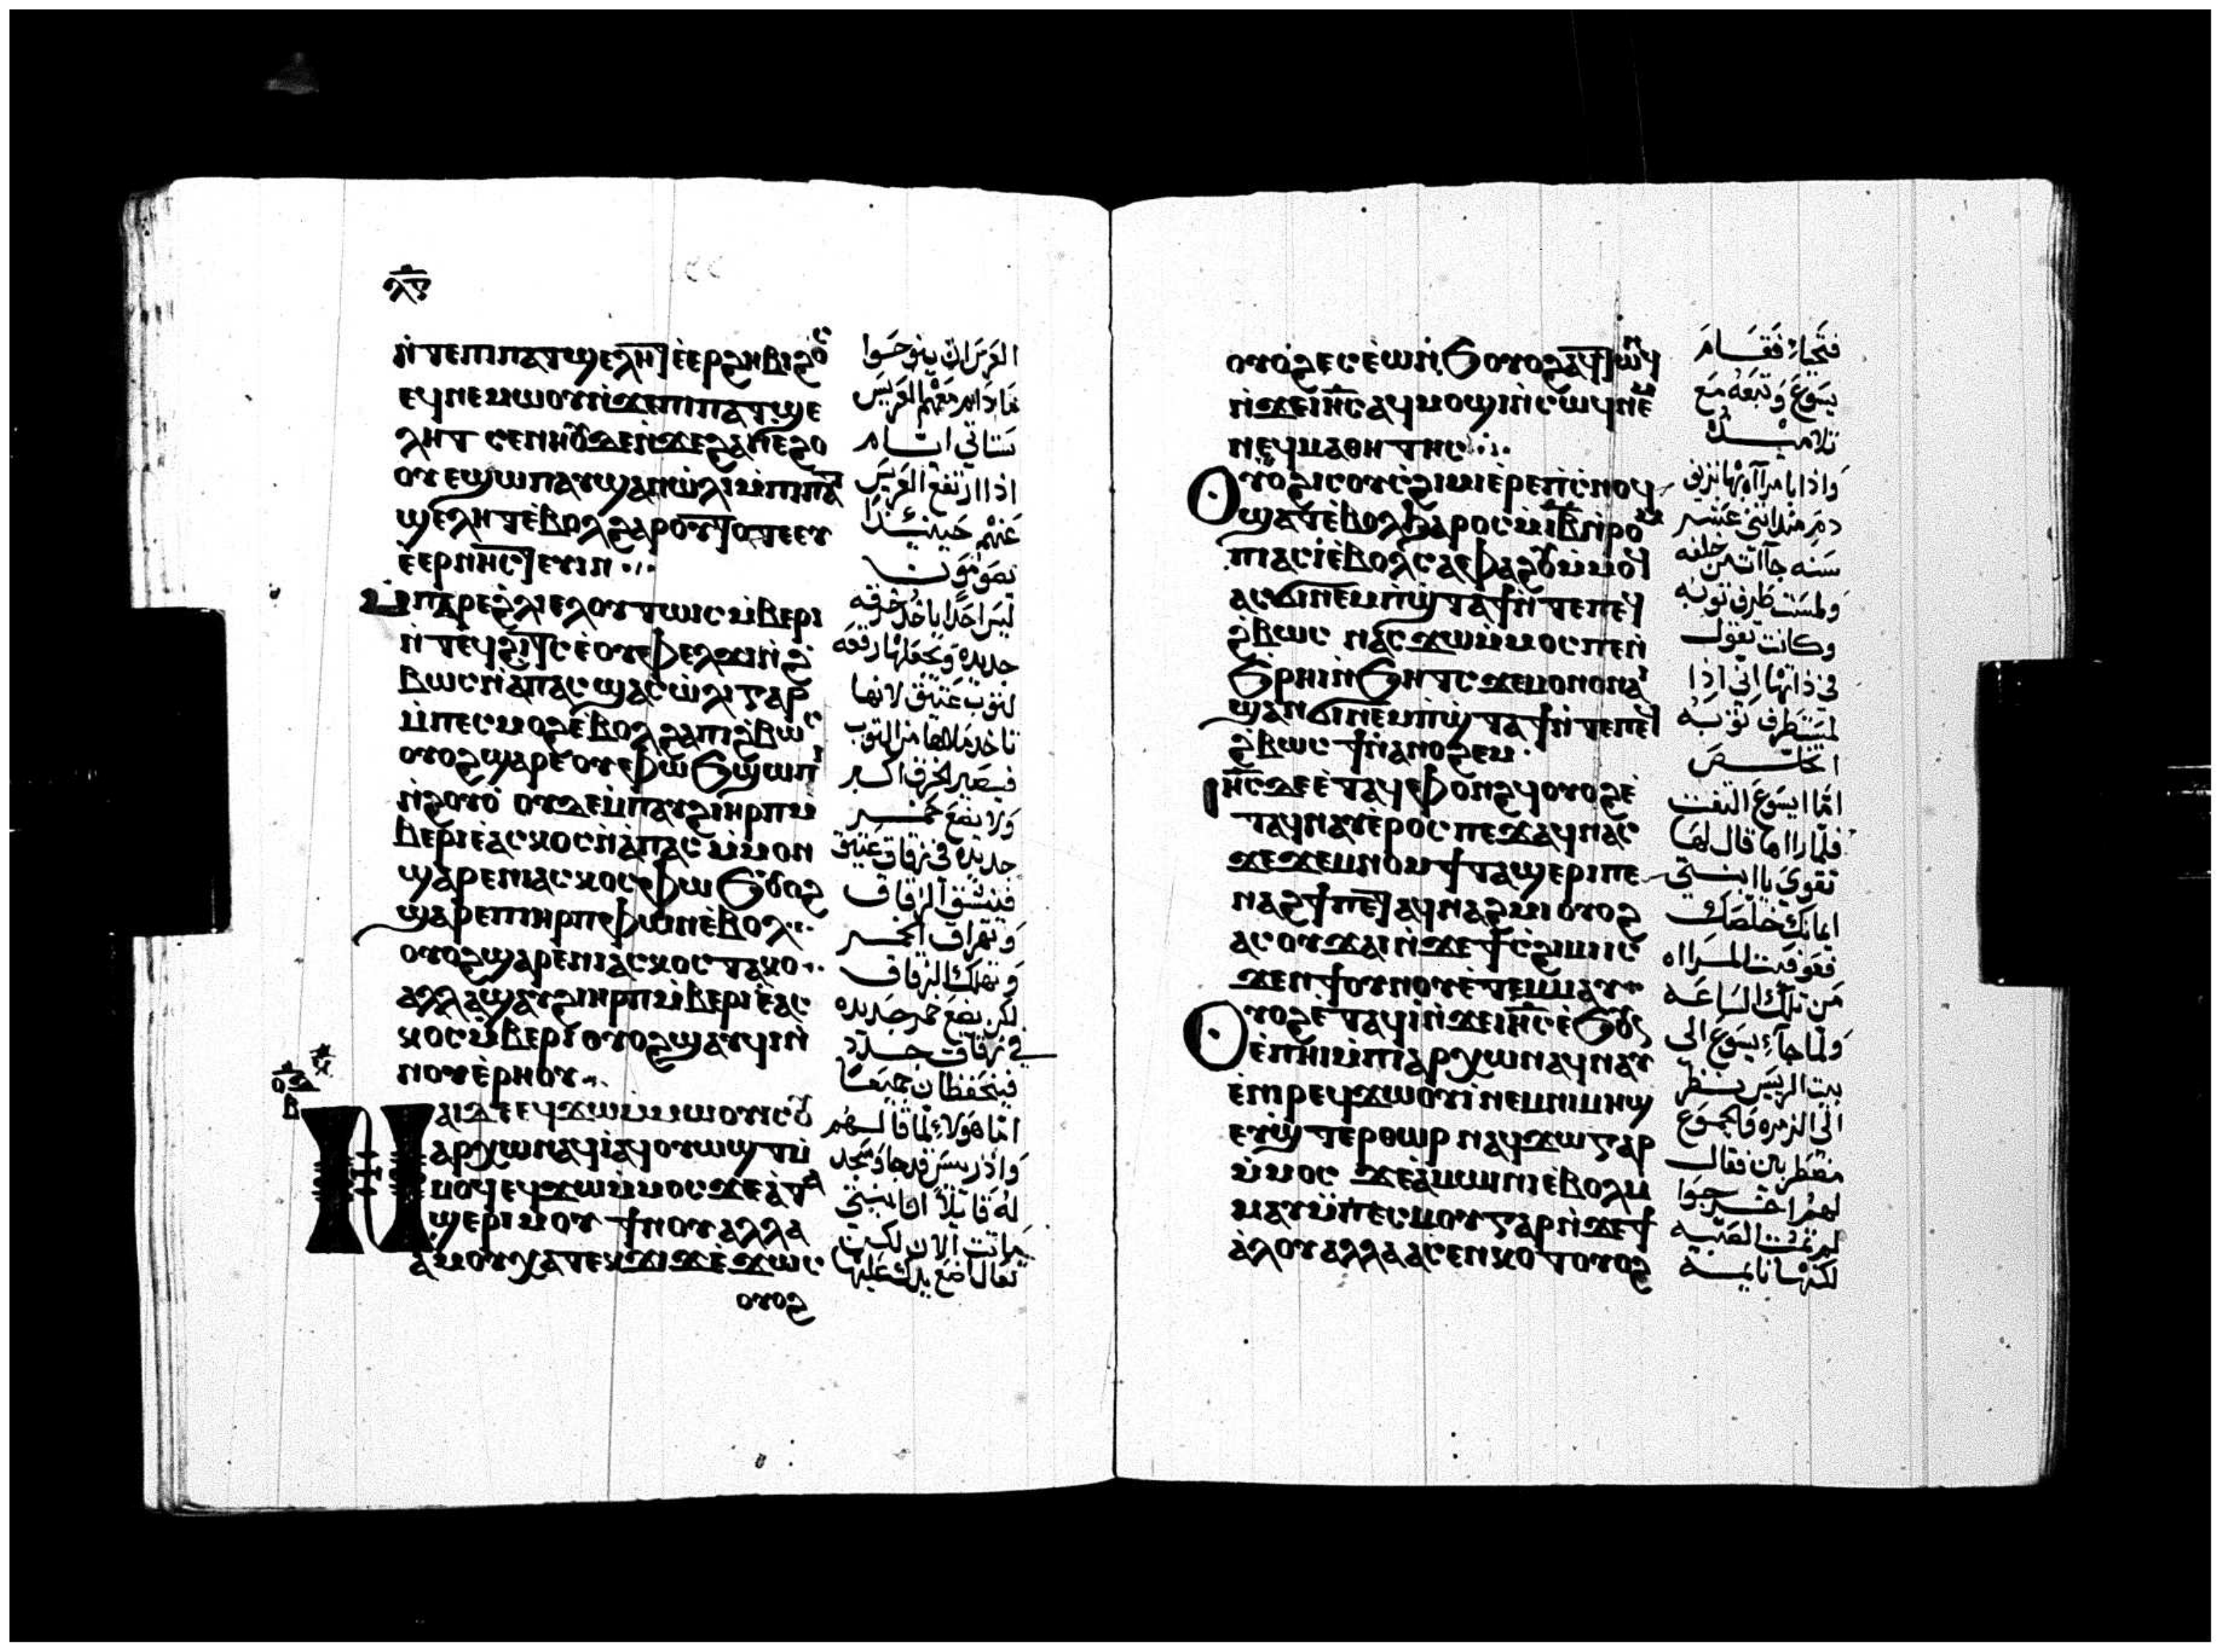 ⲗⲋ
ⲛ̀ⲧⲉⲡⲓⲡⲁⲧϣⲉⲗⲏⲧ ⲉ̀ⲉⲣϩⲏⲃⲓϩⲟⲥ
ⲉϥⲛⲉⲙⲱⲟⲩⲛ̀ϫⲉⲡⲓⲡⲁⲧϣⲉ
ⲗⲏⲧ ⲥⲉⲛⲏⲟⲩⲇⲉⲛ̀ϫⲉϩⲁⲛⲉϩⲟ
ⲟⲩ ⲉϣⲱⲡⲁⲩϣⲁⲛⲱ̀ⲗⲓⲙ̀ⲡⲓⲡⲁⲧ
ϣⲉⲗⲏⲧⲉ̀ⲃⲟⲗϩⲁⲣⲱⲟⲩ ⲧⲟⲧⲉⲉⲩ
ⲉ̀ⲉⲣⲛⲏⲥⲧⲉⲩⲓⲛ
ⲙ̀ⲡⲁⲣⲉϩ̀ⲗⲓⲉⲗⲟⲩⲧⲱⲓⲥ ⲙ̀ⲃⲉⲣⲓ
ⲛ̀ⲧⲉϥϩⲓⲧⲥ ⲉ̀ⲟⲩⲫⲉⲗϫⲓⲛ̀ϩ
ⲃⲱⲥⲛ̀ⲁ̀ⲡⲁⲥ ϣⲁⲥⲱ̀ⲗⲓ ⲅⲁⲣ
ⲙ̀ⲡⲉⲥⲙⲟϩⲉ̀ⲃⲟⲗϩⲁⲡⲓϩ̀ⲃⲱⲥ
ⲟⲩⲟϩϣⲁⲣⲉⲟⲩⲫⲱϧϣⲱⲡⲓ
ⲛ̀ϩⲟⲩⲟ̀ ⲟⲩⲇⲉⲙ̀ⲡⲁⲩϩⲓⲏⲣⲡⲙ
ⲃⲉⲣⲓⲉ̀ⲁⲥⲕⲟⲥⲛ̀ⲁ̀ⲡⲁⲥ ⲙ̀ⲙⲟⲛ
ϣⲁⲣⲉⲛⲓⲁⲥⲕⲟⲥⲫⲱϧⲟⲩⲟϩ
ϣⲁⲣⲉⲡⲓⲏⲣⲡⲫⲱⲛⲉ̀ⲃⲟⲗ
ⲟⲩⲟϩϣⲁⲣⲉⲛⲓⲁⲥⲕⲟⲥ ⲧⲁⲕⲟ
ⲁⲗⲗⲁϣⲁⲩϩⲓⲏⲣⲡⲙ̀ⲃⲉⲣⲓⲉ̀ⲁⲥ
ⲕⲟⲥⲙ̀ⲃⲉⲣⲓ ⲟⲩⲟϩϣⲁⲩϥⲓⲛ̀
ⲛⲟⲩⲉ̀ⲣⲏⲟⲩ
ⲛⲁⲓⲇⲉⲉϥϫⲱⲙ̀ⲙⲱⲟⲩⲓⲥ ⲟⲩ
ⲁⲣⲭⲱⲛⲁϥⲓ̀ⲁϥⲟⲩⲱϣⲧⲙ̀
ⲙⲟϥⲉϥϫⲱⲙ̀ⲙⲟⲥϫⲉⲁ̀ⲧⲁ
ϣⲉⲣⲓⲙⲟⲩ ϯⲛⲟⲩ ⲁⲗⲗⲁ
ⲁ̀ⲙⲟⲩⲭⲁⲧⲉⲕϫⲓϫⲉ̀ϫⲱⲥ
ⲟⲩⲟϩ
العرسان ينوحوا
ما دام معهم العريس
ستاتي ايام
اذا ارتفع العريس
عنهم حينئذ
يصومون
ليس احدا ياخذ خرقه
جديده ويجعلها رقعه
لثوب عتيق لانها
تاخذ ملاها من الثوب
فيصير الخرق اكبر
ولا يضع خمر
جديده في زقاق عتيق
فينشق الزقاق
وتهراق الخمر
وتهلك الزقاق
لكن يضع خمر جديده
في زقاق جدد
فيتحفظان جميعا
اما هولاء لما قالهم
واذ رييس قد جا وسجد
له قايلا ان ابنتي
ماتت الان لكن
تعال ضع يدك عليها
ⲟⲩⲟϩⲉⲥⲉ̀ⲱⲛϧ ⲟⲩⲟϩⲁϥⲧⲱⲛϥ
ⲛ̀ϫⲉⲓⲏⲥ ⲁϥⲙⲟϣⲓⲛ̀ⲥⲱϥⲛⲉⲙ
ⲛⲉϥⲙⲁⲑⲏⲧⲏⲥ
ⲟⲩⲟϩⲓⲥⲟⲩⲥ̀ϩⲓⲙⲓⲉ̀ⲣⲉⲡⲓⲥ̀ⲛⲟϥ
ϣⲁⲧⲉ̀ⲃⲟⲗϧⲁⲣⲟⲥⲙ̀ⲓⲃⲛ̀ⲣⲟⲙ
ⲡⲓⲁⲥⲓ̀ⲉ̀ⲃⲟⲗⲥⲁⲫⲁϩⲟⲩⲙ̀ⲙⲟϥ
ⲁⲥϭⲓⲛⲉⲙⲡ̀ϣⲧⲁϯⲛ̀ⲧⲉⲡⲉϥ
ϩ̀ⲃⲱⲥ ⲛⲁⲥϫⲱⲙ̀ⲙⲟⲥ ⲡⲉⲛ̀
ϧⲣⲏⲓⲛ̀ϧⲏⲧⲥ ϫⲉⲙⲟⲛⲟⲛⲁⲓ
ϣⲁⲛϭⲓⲛⲉⲙⲡ̀ϣⲧⲁϯⲛ̀ⲧⲉⲡⲉϥ
ϩ̀ⲃⲱⲥ ϯⲛⲁⲛⲟϩⲉⲙ
ⲓⲏⲥⲇⲉⲉ̀ⲧⲁϥⲫⲟⲛϩϥⲟⲩⲟϩⲉ̀
ⲧⲁϥⲛⲁⲩⲉ̀ⲣⲟⲥ ⲡⲉϫⲁϥⲛⲁⲥ
ϫⲉϫⲉⲙⲛⲟⲙϯⲧⲁϣⲉⲣⲓ ⲡⲉ
ⲛⲁϩϯⲡⲉⲧⲁϥⲛⲁϩⲙⲓ ⲟⲩⲟϩ
ⲁⲥⲟⲩϫⲁⲓⲛ̀ϫⲉϯⲥ̀ϩⲓⲙⲓⲥ
ϫⲉⲛϯⲟⲩⲛⲟⲩⲉ̀ⲧⲉⲙⲙⲁⲩ
ⲟⲩⲟϩⲉ̀ⲧⲁϥⲓ̀ⲛ̀ϫⲉⲓⲏⲥⲉ̀ϧⲟⲩⲛ
ⲉ̀ⲡⲏⲓⲙ̀ⲡⲓⲁⲣⲭⲱⲛⲁϥⲛⲁⲩ
ⲉ̀ⲛⲓⲣⲉϥϫⲱⲟⲩⲓ ⲛⲉⲙⲡⲓⲙⲏϣ
ⲉⲩϣ̀ⲧⲉⲣⲑⲱⲣ ⲛⲁϥϫⲱ ⲅⲁⲣ
ⲙ̀ⲙⲟⲥ ϫⲉⲙⲁϣⲱⲛⲓⲉ̀ⲃⲟⲗⲙ
ⲙⲁⲩⲙ̀ⲡⲉⲥⲙⲟⲩ ⲅⲁⲣⲛ̀ϫⲉϯ
ⲁ̀ⲗⲟⲩ ⲁⲗⲗⲁⲁⲥⲉⲛⲕⲟⲧ ⲟⲩⲟϩ
فتحيا فقام
يسوع وتبعه مع
تلاميذه
واذا بامراه بها نزف
دم منذ اثني عشر
سنه جاات من خلفه
ولمست طرف ثوبه
وكانت تقول
في ذاتها اني اذا
لمست طرف ثوبه
اخلص
اما ايسوع التفت
فلما راها قال لها
تقوي يا ابنتي
ايمانك خلصك
فعوفيت المراه
من تلك الساعه
ولما جاء يسوع الى
بيت الرييس نظر
الى الزمره والجموع
مضطربين فقال
لهم اخرجوا
لم تمت الصبيه
لكنها نايمه